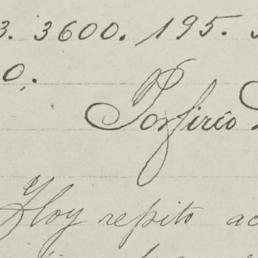 3. 3600. 195.
0.
Porfirio
Hoy repito